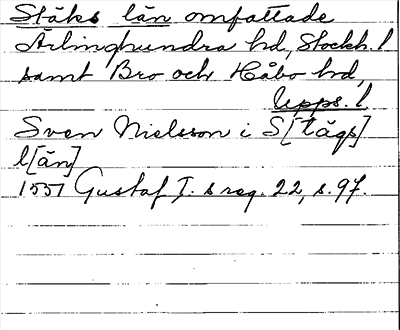 Stäks län omfattade
Ärlinghundra hd, Stockh. l
samt Bro och Håbo hd,
Upps. l
Sven Nielsson i S[tägs]
l[än]
1551 Gustaf I. s reg. 22, s. 97.